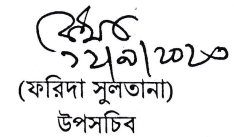 ২৭/৯/২০২৩
(ফরিদা সুলতানা)
উপসচিব